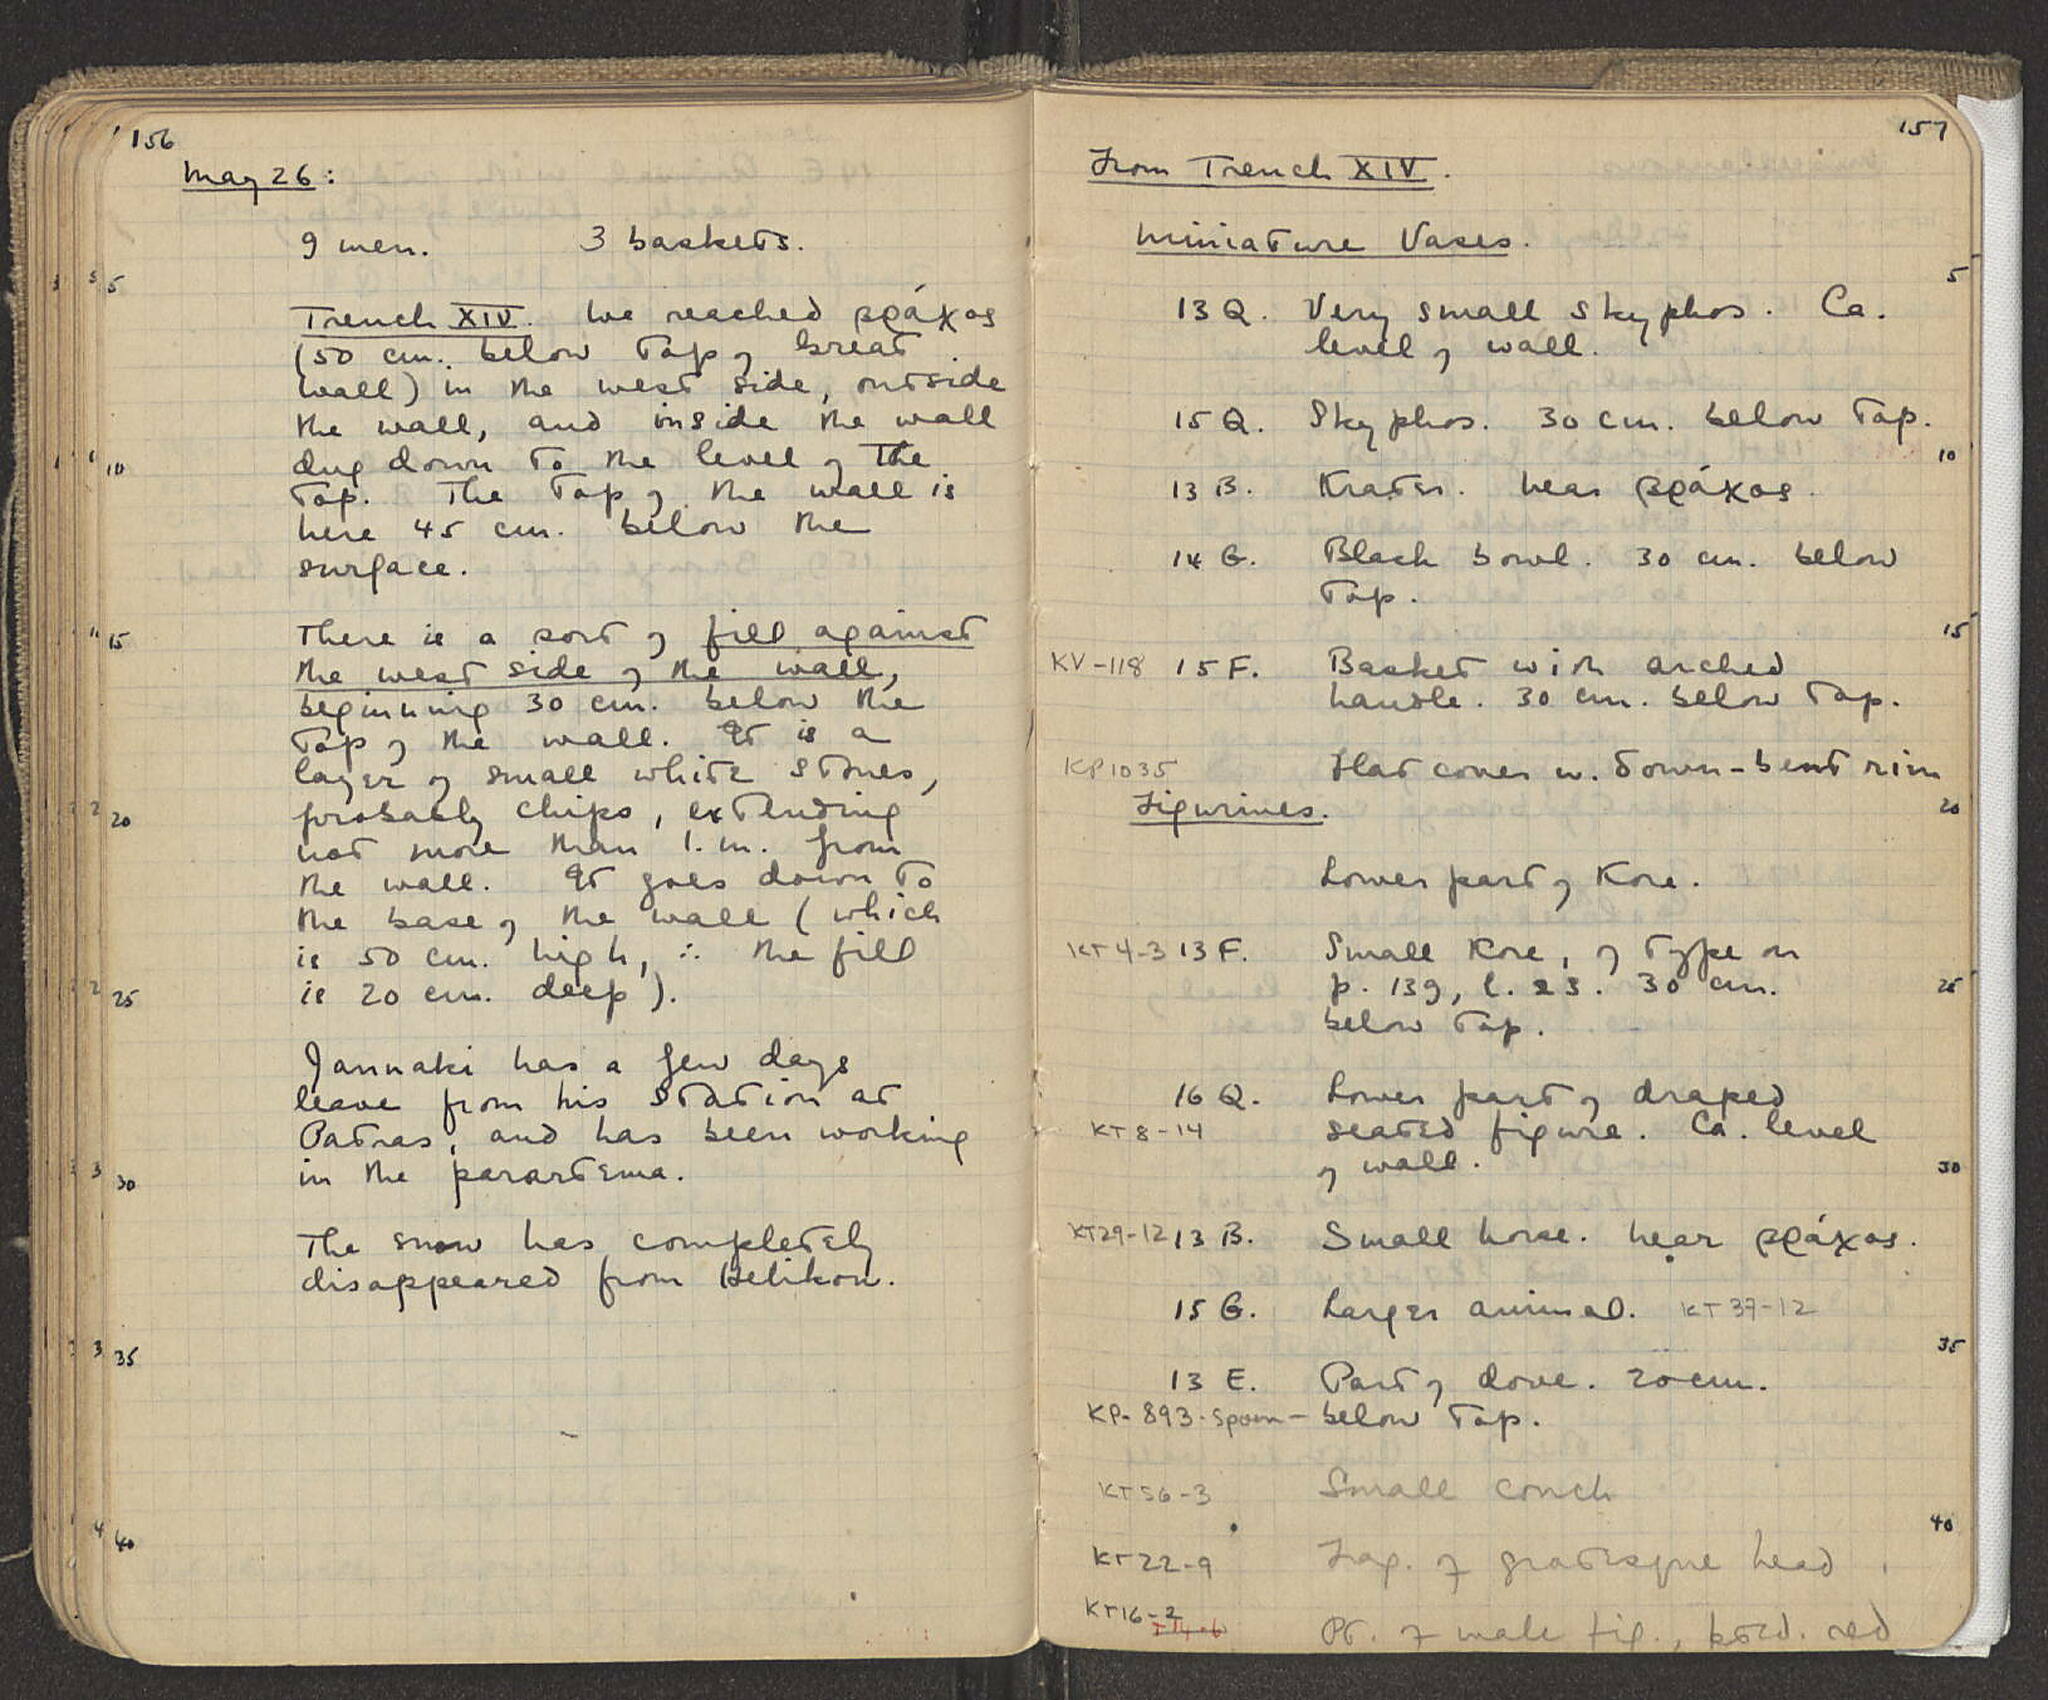 156
May 26:
9 men. 3 baskets.
5
Trench XIV. We reached βράχος
(50 cm. below top of Great
Wall) in the west side, outside
the wall, and inside the wall
dug down to the level of the
10
top. The top of the wall is
here 45 cm. below the
surface.
There is a sort of fill against
15
the west side of the wall,
beginning 30 cm. below the
top of the wall. It is a
layer of small white stones,
probably chips, extending
20
not more than 1. m. from
the wall. It goes down to
the base of the wall (which
is 50 cm. high, ∴ the fill
is 20 cm. deep).
25
Jannaki has a few days
leave from his station at
Patras, and has been working
in the parartema.
30
The snow has completely
disappeared from Helikon.
35
40
157
From Trench XIV.
Miniature Vases.
5
13 Q. Very small skyphos. Ca.
level of wall.
15 Q. Skyphos. 30 cm. below top.
10
13 B. Krater. Near βράχος.
14 G. Black bowl. 30 cm. below
top.
15
KV-118 15 F. Basket with arched
handle. 30 cm. below top.
KP1035 Flat cover w. down-bent rim
Figurines.
20
Lower part of Kore.
KT4-3 13 F. Small Kore, of type on
p. 139, l. 23. 30 cm.
25
below top.
16 Q. Lower part of draped
KT8-14 seated figure. Ca. level
of wall.
30
KT29-12 13 B. Small horse. Near βράχος.
15 G. Larger animal. KT37-12
35
13 E. Part of dove. 20 cm.
KP-893-spoon- below top.
KT56-3 Small couch
40
KT22-9 Frag. of grotesque head
KT16-2
Pt. of male fig., ptd. red